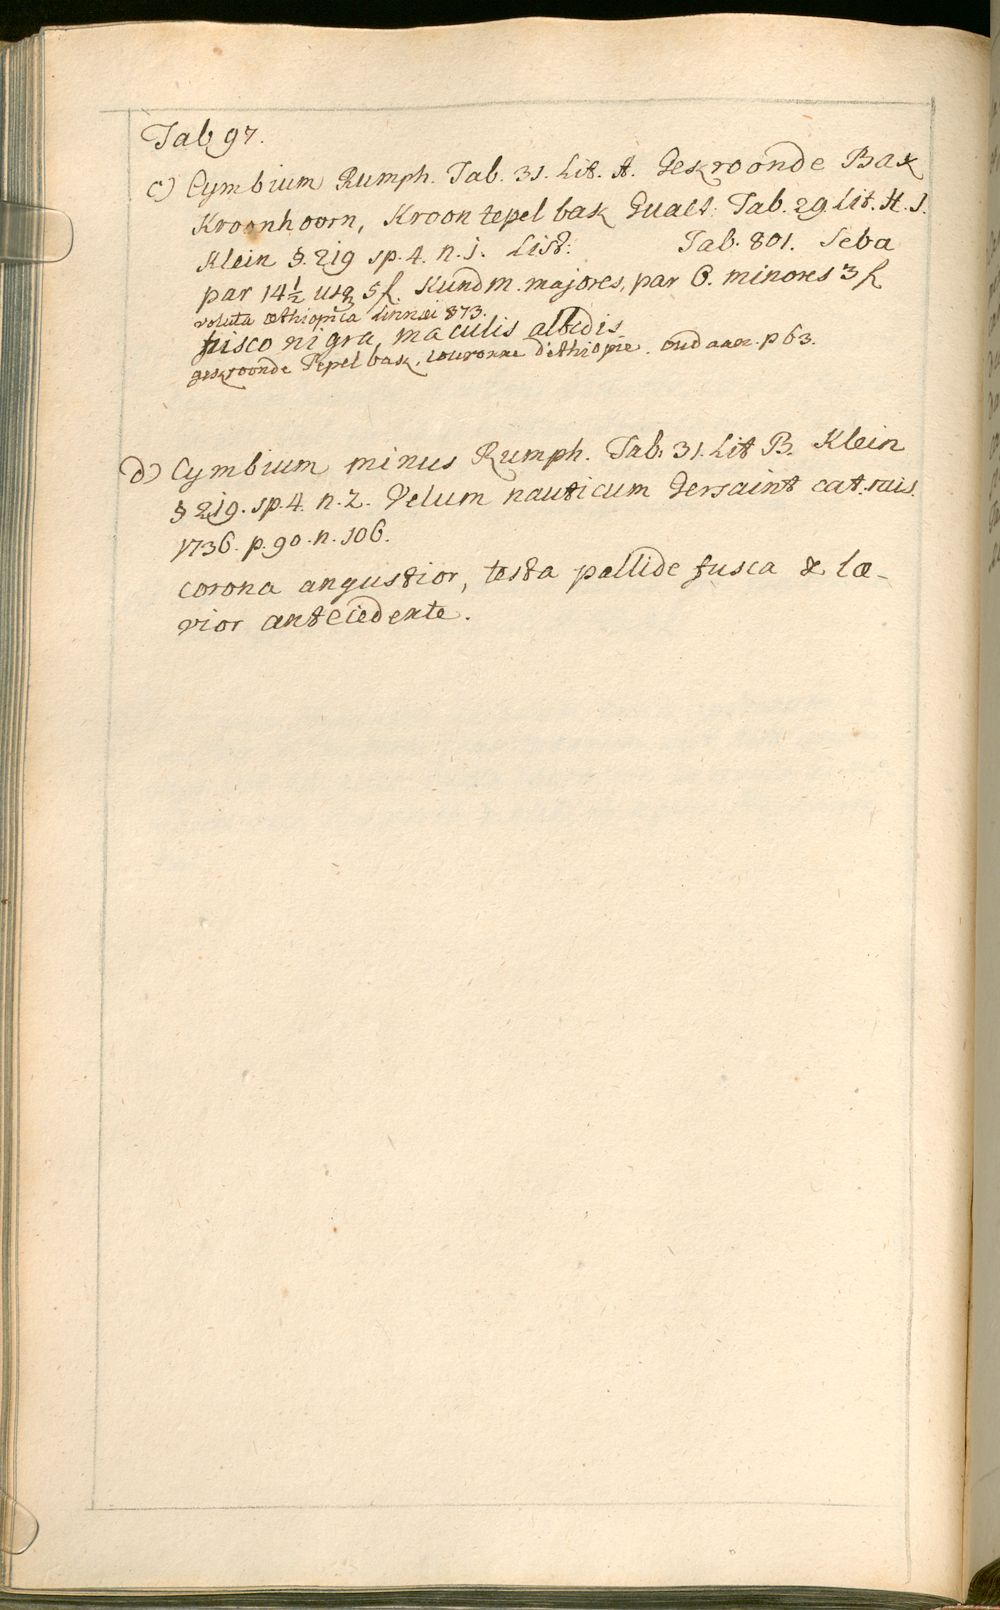 Tab 97.
c) Cymbium Rumph. Tab. 31. Lit. A. Geskroonde Bak
Kroonhoorn, Kroon tepel bak Gualt: Tab. 29 Lit. H. I.
Klein §. 219 sp. 4. n. 1. List: Tab. 801. Seba
par 14½ usq 5 f. Kundm. majores, par 6. minores 3 f
voluta æthiopica Linnæi 873.
fusco nigra, maculis albidis
geskroonde Tepel bak, couronne d'ethiopie. oud aan. p 63.
d) Cymbium minus Rumph. Tab. 31. Lit B. Klein
§ 219. sp. 4. n. 2. Velum nauticum Gersaint cat. rais.
1736. p. 90. n. 106.
corona angustior, testa pallide fusca & læ-
vior antecedente.